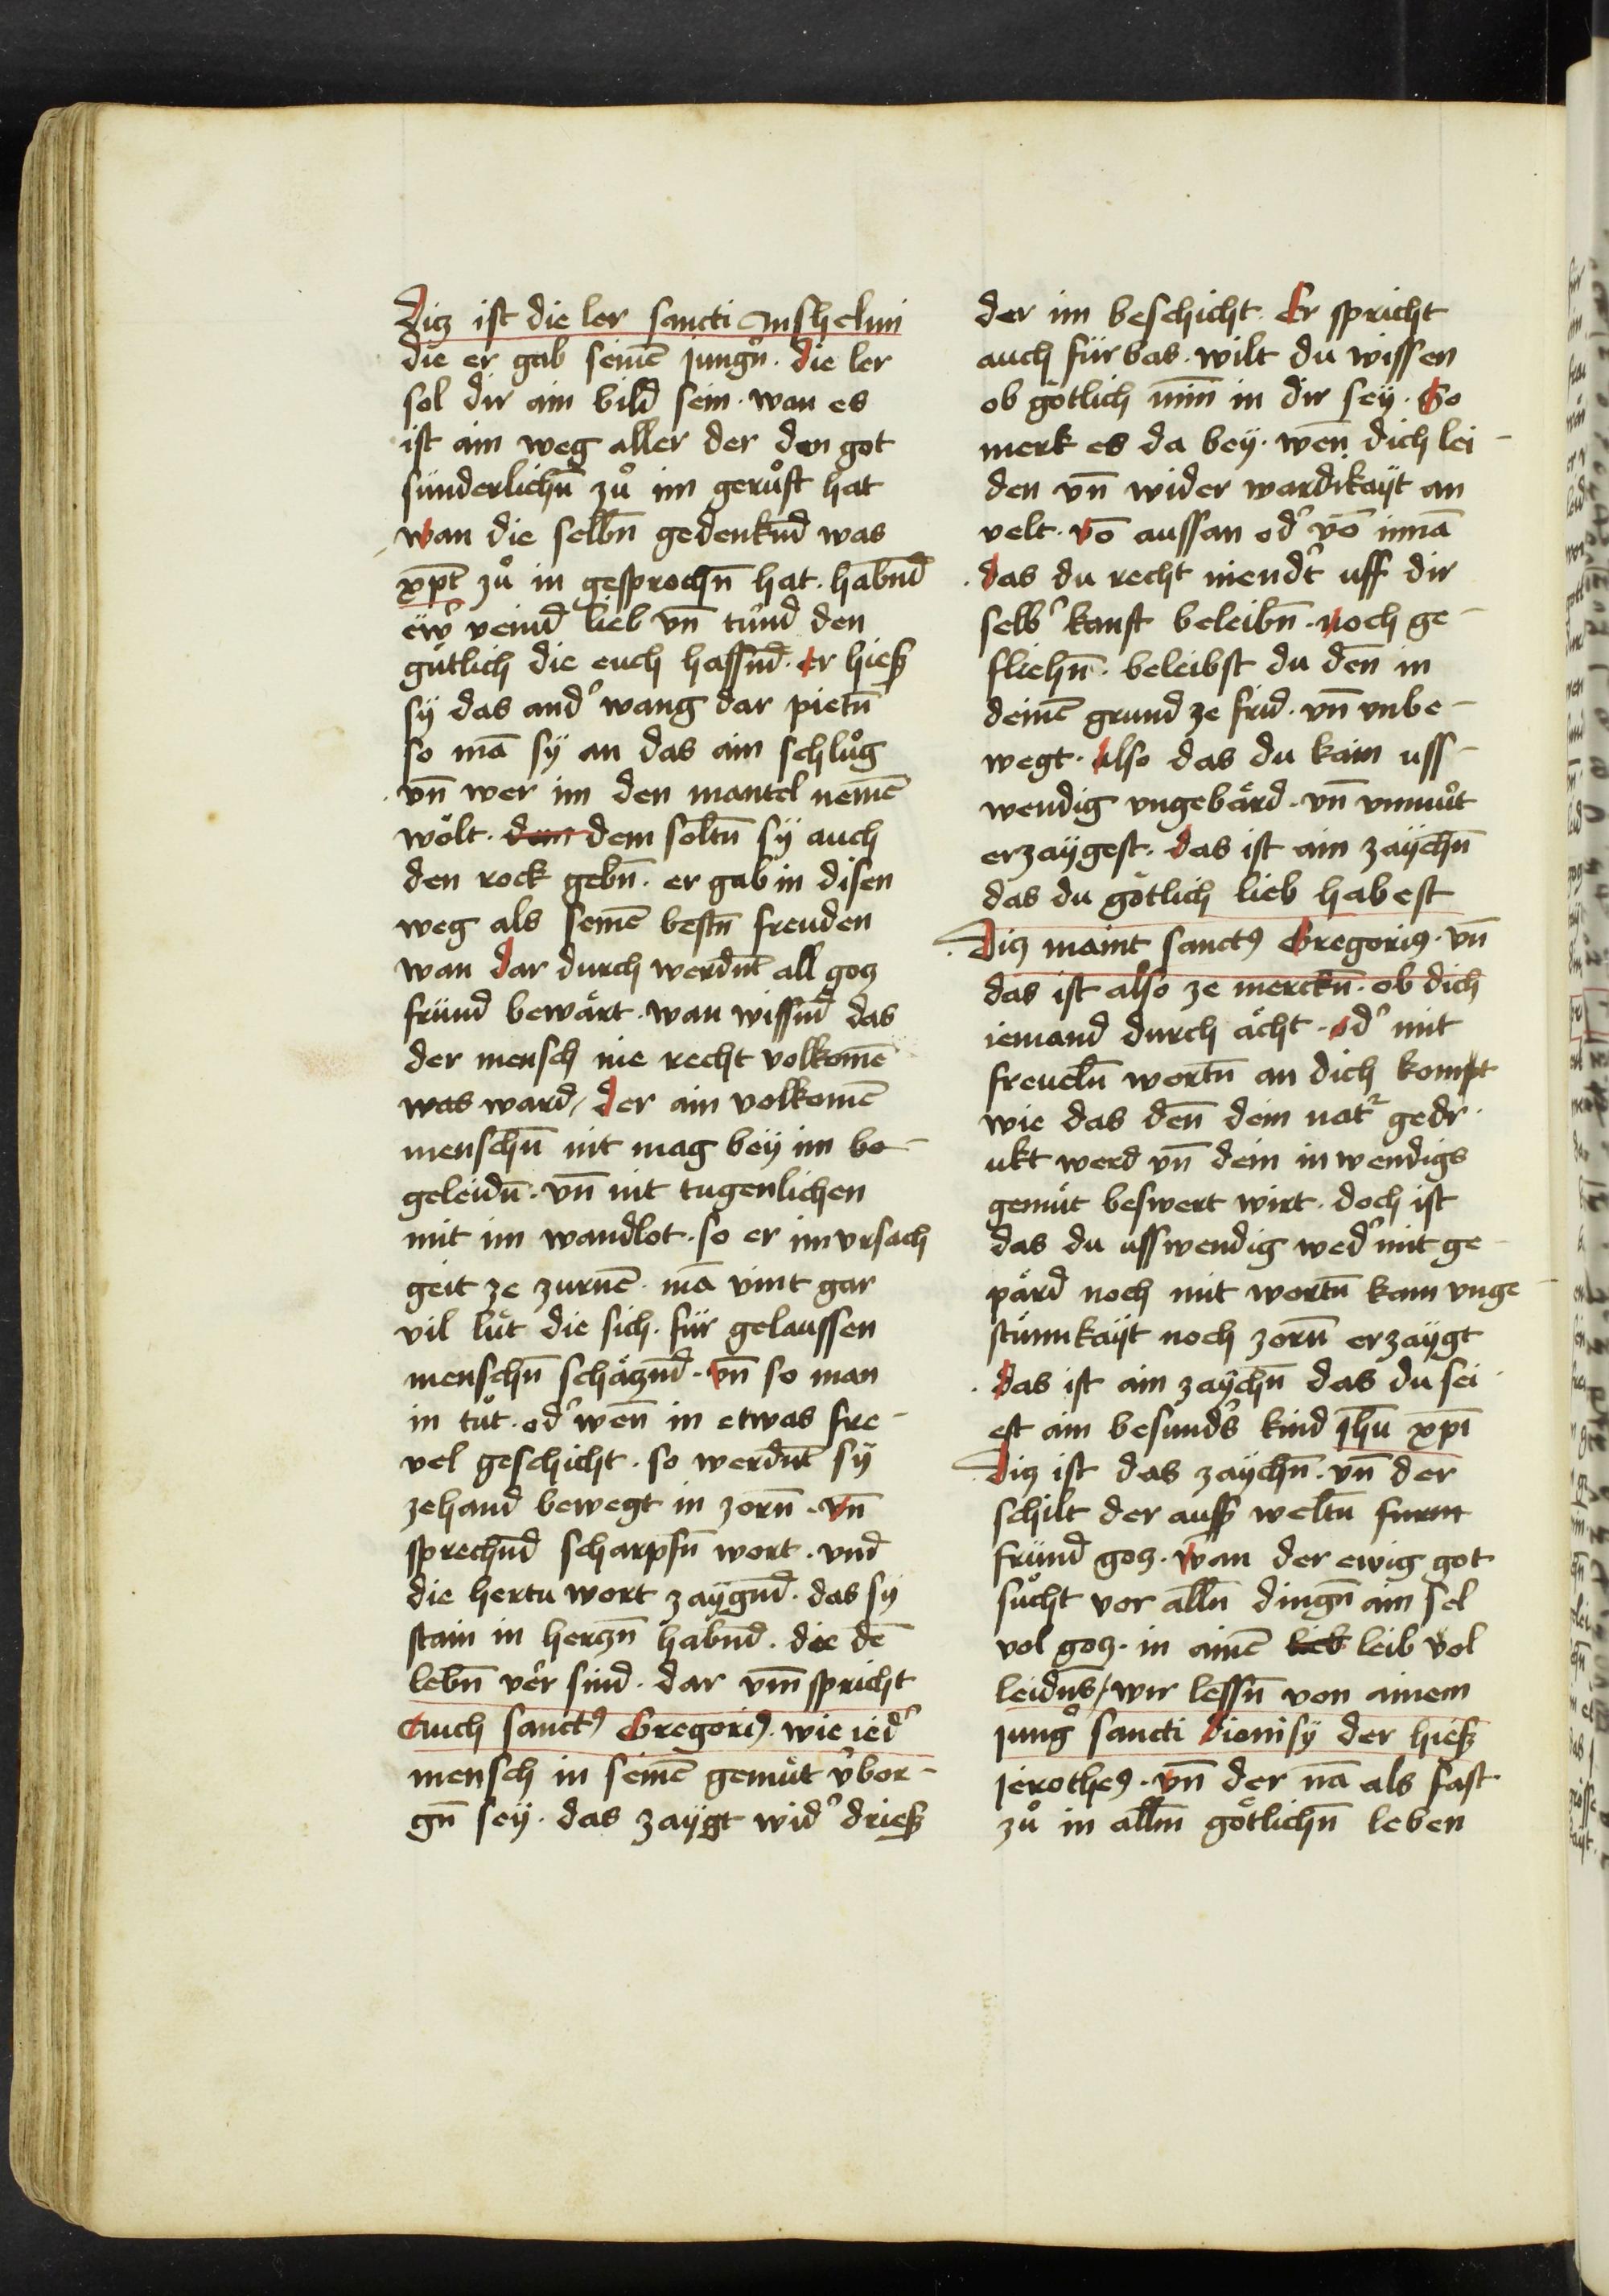 Diz ist die ler sancti Anshelmi
die er gab seinē jungn̄. die ler
sol dir ain bild sein. wan es
ist ain weg aller der den got
sunderlichn̄ zů im gerůft hat
wan die selbn̄ gedenkn̄d was
xp̄c zů in gesprochn̄ hat. habn̄d
ew͛ veind lieb vn̄ tůnd den
gůtlich die euch hassn̄d. er hiesz
sÿ das and͛ wang dar pietn̄
so mā sÿ an das ain schlůg
vn̄ wer im den mantel nemē
wölt. den dem soltn̄ sÿ auch
den rock gebn̄. er gab in disen
weg als seinē bestn̄ freuden
wan dar durch werdn̄t all goz
fründ bewärt. wan wissn̄d das
der mensch nie recht volkomē
was ward, der ain volkomē
menschn̄ nit mag beÿ im be-
geleidn̄. vn̄ nit tugenlichen
mit im wandlot. so er im vrsach
geit ze zurnē. mā vint gar
vil lüt die sich. für gelaussen
menschn̄ schäzn̄d. vn̄ so man
in tůt. od͛ wen̄ in etwas fre-
vel geschicht. so werdn̄t sÿ
zehand bewegt in zorn̄. vn̄
sprechn̄d scharpfn̄ wort. vnd
die hertu wort zaÿgn̄d. das sÿ
stain in herzn̄ habn̄d. die dē
lebn̄ v͛er sind. dar vm̄ spricht
Auch sanct⁹ Gregori⁹. wie ied͛
mensch in seinē gemüt v͛bor-
gn̄ seÿ. das zaÿgt wid͛ driesz
der im beschicht. Er spricht
auch fürbas. wilt du wissen
ob götlich min̄ in dir seÿ. So
merk es da beÿ. wen̄ dich lei-
den vn̄ wider wardikaÿt an
velt. vō aussan od͛ vō innā
das du recht niendt͛ uff dir
selb͛ kanst beleibn̄. noch ge-
fliehn̄. beleibst du den̄ in
deinē grund ze frid. vn̄ vnbe-
wegt. Also das du kain uss-
wendig vngebärd. vn̄ vnmůt
erzaÿgest. das ist ain zaÿchn̄
das du götlich lieb habest
Diz maint sanct⁹ Gregori⁹. vn̄
das ist also ze merckn̄. ob dich
iemand durch ächt. od͛ mit
freueln̄ wortn̄ an dich kompt
wie das den̄ dein nat͛ gedr-
ukt werd vn̄ dein inwendigs
gemüt beswert wirt. doch ist
das du usswendig wed͛ mit ge-
pärd noch mit wortn̄ kain vnge-
stümkaÿt noch zorn̄ erzaÿgt
das ist ain zaÿchn̄ das du sei-
est ain besund͛s kind ih̄u xp̄i
Diz ist das zaÿchn̄. vn̄ der
schilt der ausz weltn̄
fründ goz. wan der ewig got
sůcht vor alln̄ dingn̄ ain sel
vol goz. in ainē lieb leib vol
leidn̄s, wir lessn̄ von ainem
jung͛ sancti Dionisÿ der hiesz
jerothe⁹. vn̄ der nā als fast
zů in alln̄ götlichn̄ leben